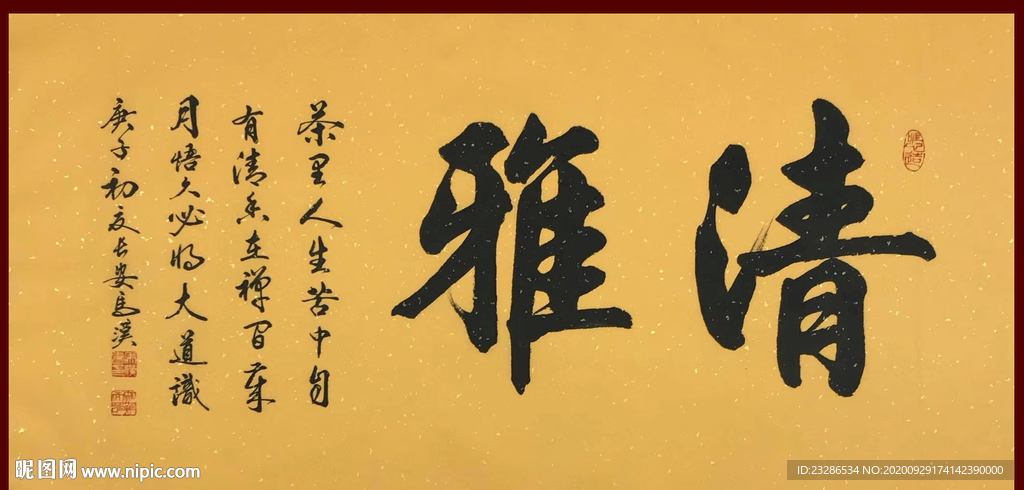 清雅
茶里人生苦中自
有清香在禅间幾
月悟久必将大道識
庚子初夏长安马溪
昵图网 www.nipic.com
ID:23286534 NO:20200929174142390000